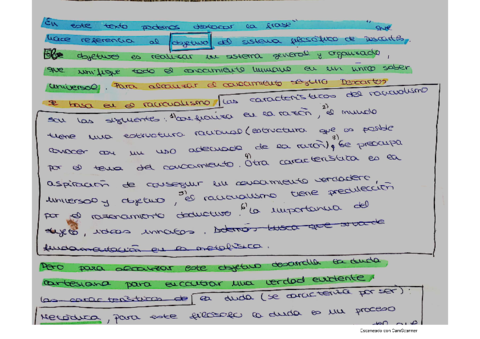 En este texto podemos destacar la frase "          " que
hace referencia al objetivo del sistema filosófico de Descartes,
objetivo es realizar un sistema general y organizado,
que unifique todo el conocimiento humano en un único saber
universal. Para alcanzar el conocimiento seguro Descartes
se basa en el racionalismo. Las características del racionalismo
son las siguientes: 1) confianza en la razón, el mundo
tiene una estructura racional (estructura que es posible
conocer con un uso adecuado de la razón), se preocupa
por el tema del conocimiento. Otra característica es la
aspiración de conseguir un conocimiento verdadero,
universal y objetivo, el racionalismo tiene predilección
por el razonamiento deductivo. la importancia del
sujeto, ideas innatas.
fundamentación en la metafísica.
Pero para alcanzar este objetivo desarrolla la duda
cartesiana para encontrar una verdad evidente
las características de la duda (se caracteriza por ser):
Metódica, para este filósofo la duda es un proceso
Escaneado con CamScanner